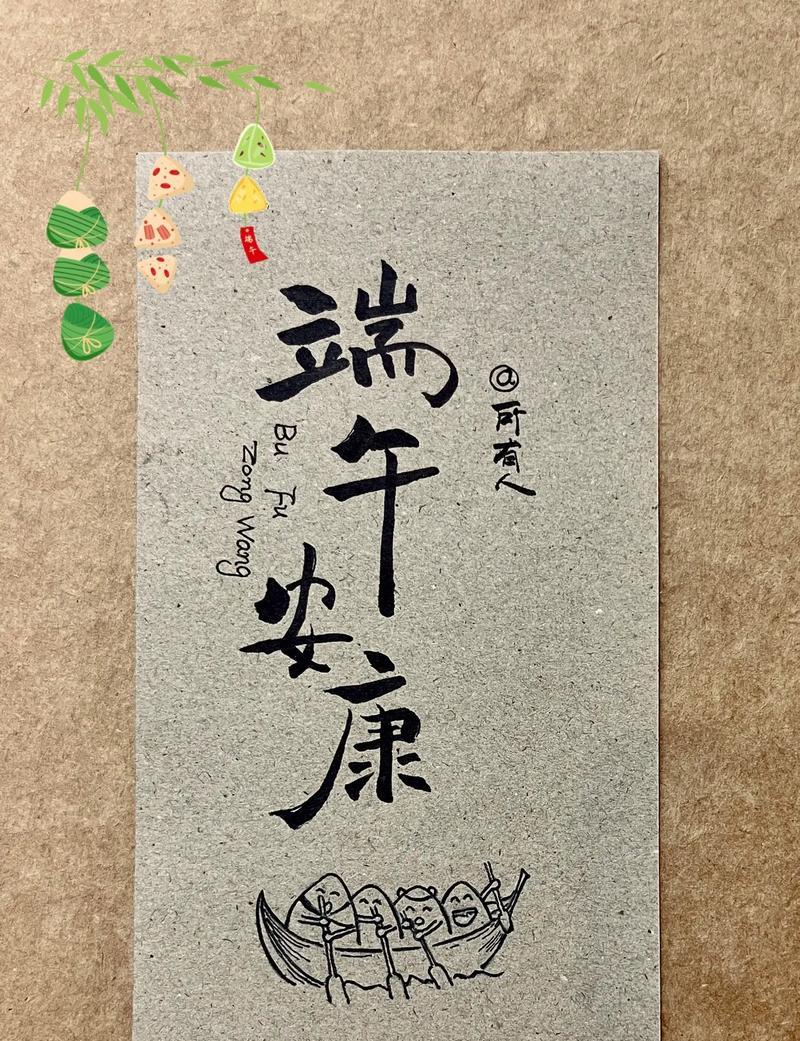 端午
端午安康
@所有人
Bu Fu
Zong Wang